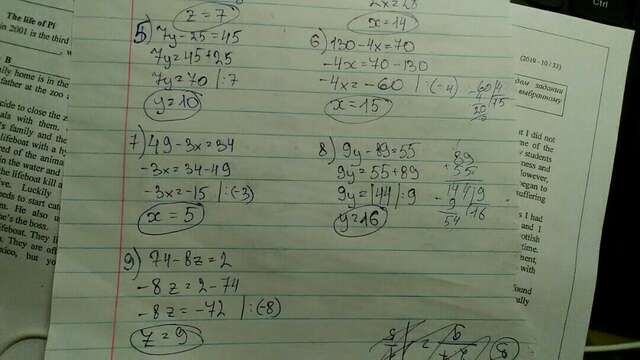 z = 7
2x = 28
x = 14
5) 7y - 25 = 45
7y = 45 + 25
7y = 70 | : 7
y = 10
6) 130 - 4x = 70
-4x = 70 - 130
-4x = -60 | : (-4)
x = 15
60 | 4
4
20
15
7) 49 - 3x = 34
-3x = 34 - 49
-3x = -15 | : (-3)
x = 5
8) 9y - 89 = 55
9y = 55 + 89
9y = 144 | : 9
y = 16
89
+ 55
144 | 9
- 9
54
16
9) 74 - 8z = 2
-8z = 2 - 74
-8z = -72 | : (-8)
z = 9
The life of Pi
in 2001 is the third
B
family home is in the
father at the zoo
decide to close the z
als with them.
's family and the
lifeboat with a hy
red of the animal
in the water and
the lifeboat kill a
ive. Luckily
eeds to start
m. He also
e's the boss.
lifeboat. They li
. They are of
xico, but yo
(2019 - 10 / 33)
задания
выбранному
t I did not
me of the
students
ness and
owever,
egan to
uffering
s I had
and I
ottish
time.
ment,
with
ound
ally
Ctrl